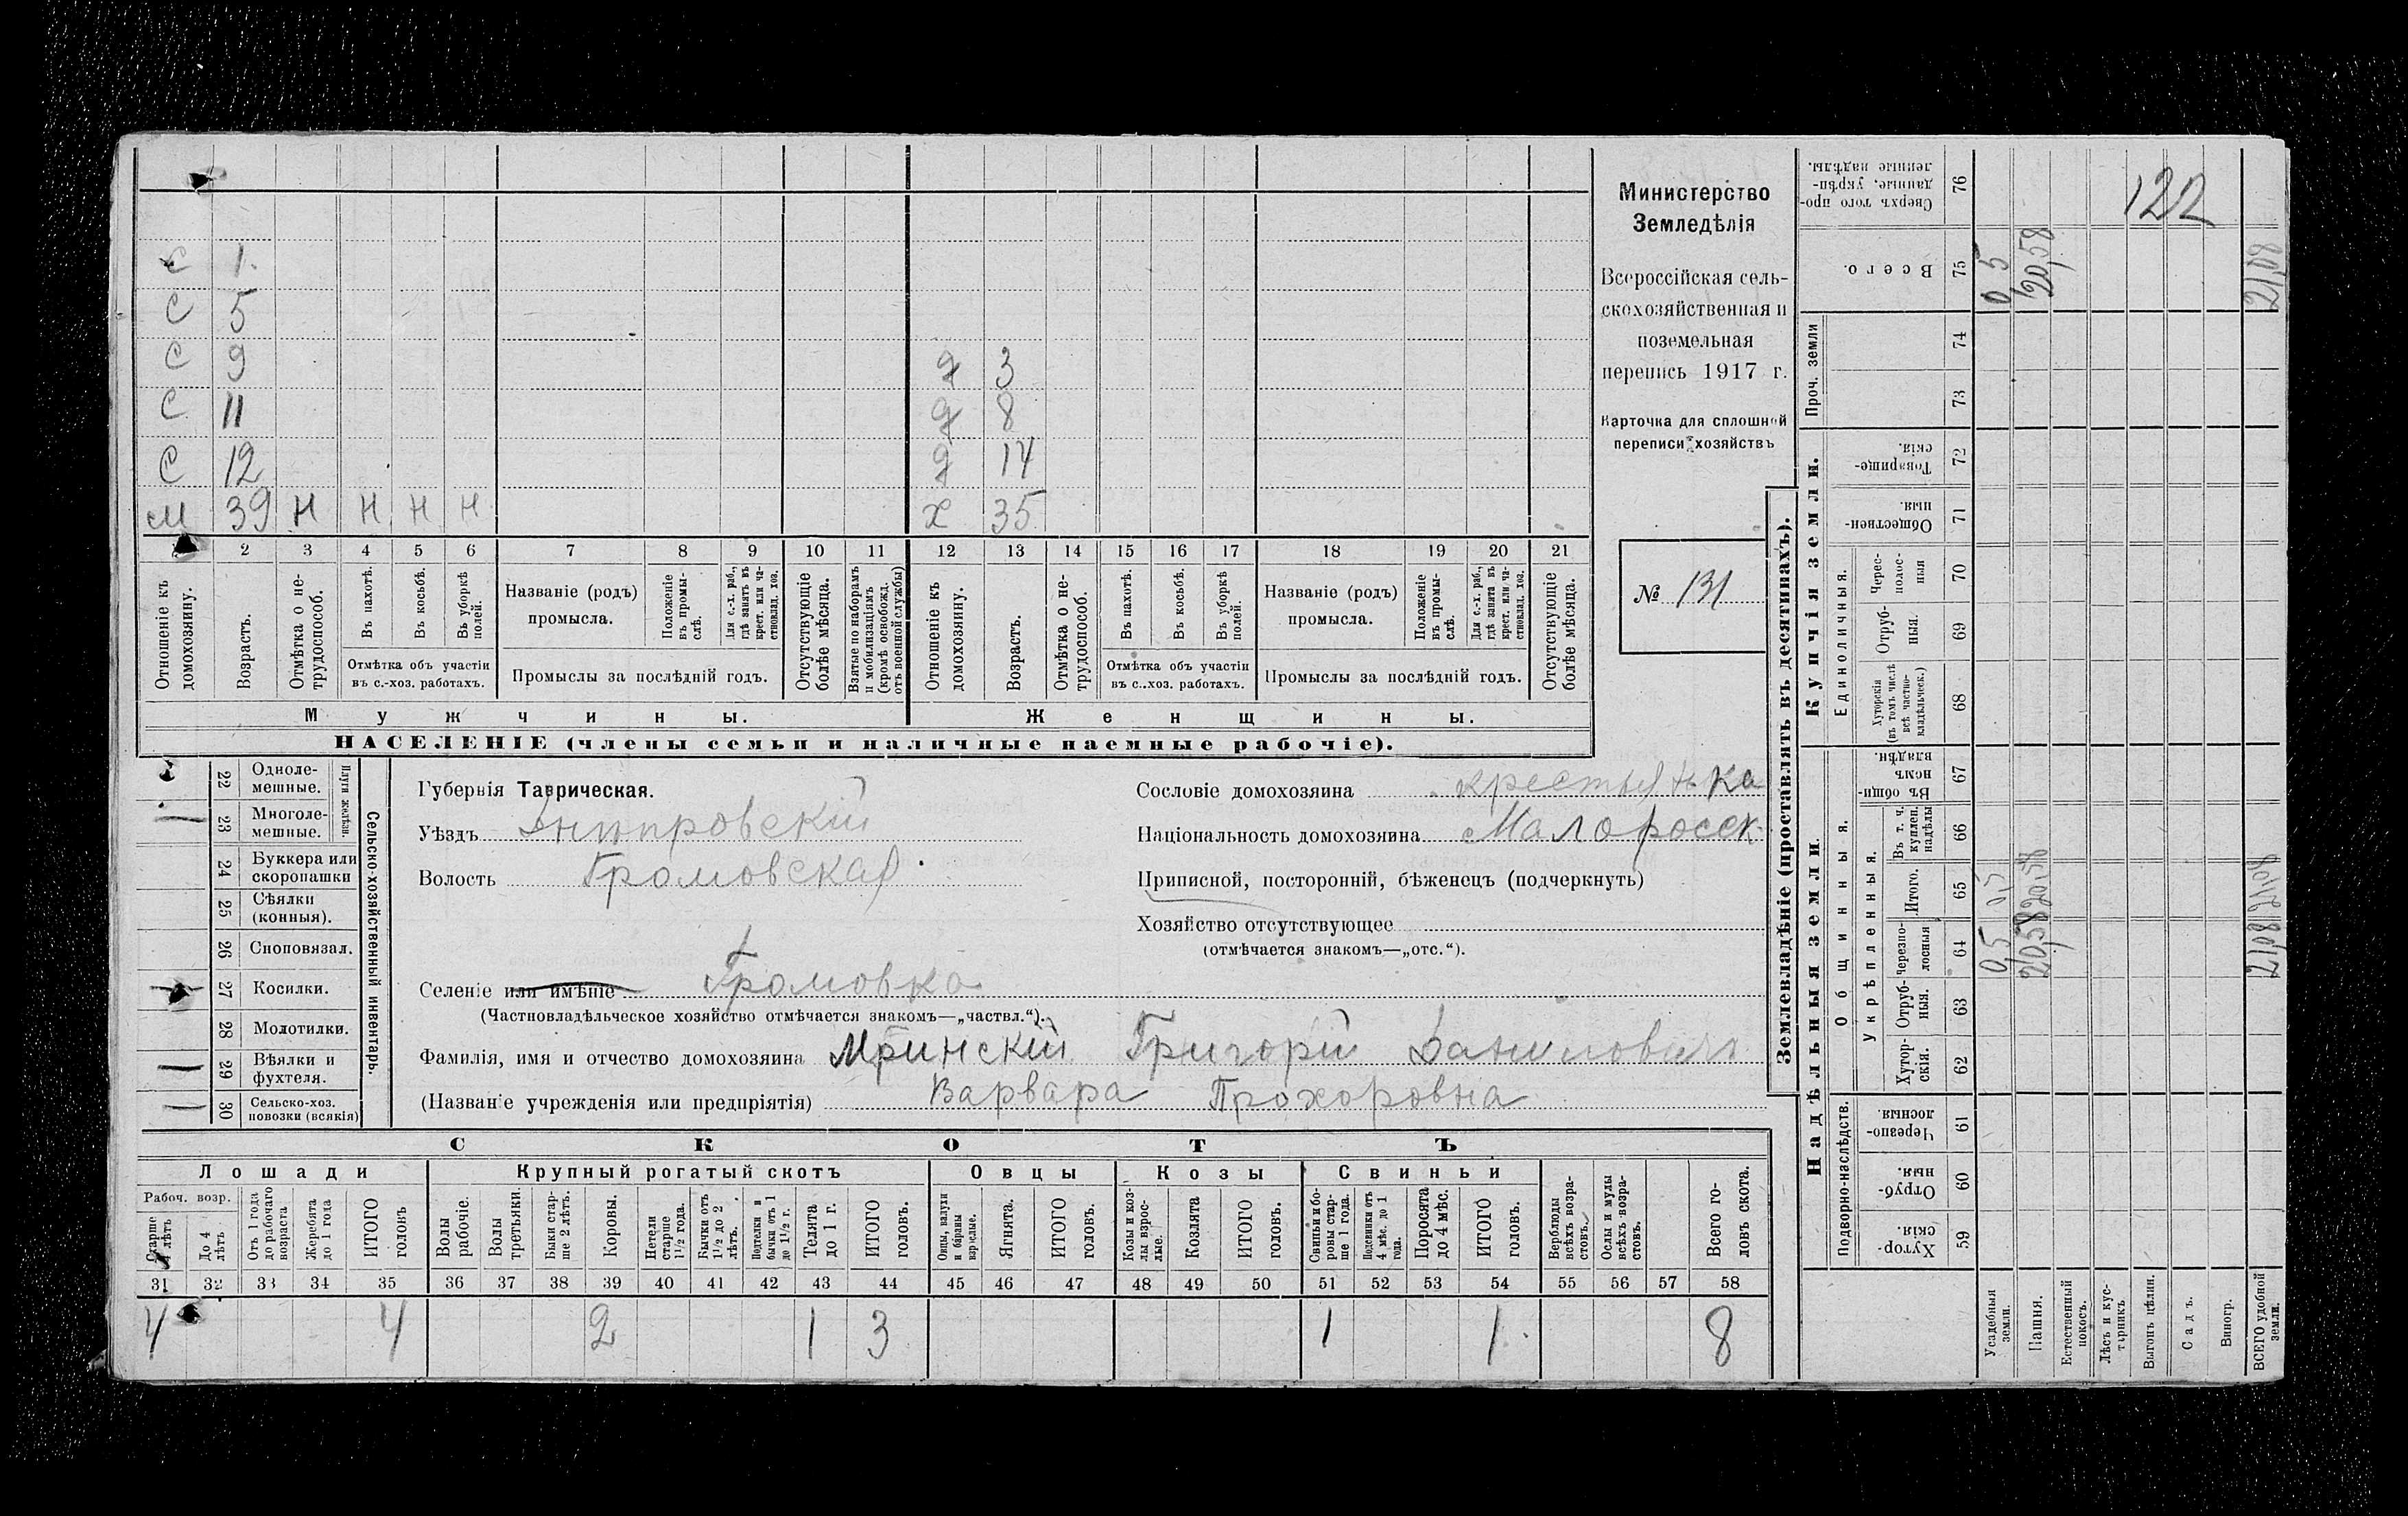 С 1.
С 5
С 9 д 3
С 11 д 8
С 12 д 14
м 39 Н Н Н Н х 35
2 3 4 5 6 7 8 9 10 11 12 13 14 15 16 17 18 19 20 21
Отношеніе къ домохозяину.
Возрастъ.
Отмѣтка о нетрудоспособ.
Въ пахотѣ.
Въ косьбѣ.
Въ уборкѣ полей.
Отмѣтка объ участіи
въ с.-хоз. работахъ.
Названіе (родъ)
промысла.
Положеніе въ промыслѣ.
Для с.-х. раб., гдѣ занятъ въ крест. или частновлад. хоз.
Промыслы за послѣдній годъ.
Отсутствующіе болѣе мѣсяца.
Взятые по наборамъ и мобилизаціямъ (кромѣ освобожд. отъ военной службы)
Отношеніе къ домохозяину.
Возрастъ.
Отмѣтка о нетрудоспособ.
Въ пахотѣ.
Въ косьбѣ.
Въ уборкѣ полей.
Отмѣтка объ участіи
въ с.-хоз. работахъ.
Названіе (родъ)
промысла.
Положеніе въ промыслѣ.
Для с.-х. раб., гдѣ занята въ крест. или частновлад. хоз.
Промыслы за послѣдній годъ.
Отсутствующіе болѣе мѣсяца.
Мужчины. Женщины.
НАСЕЛЕНІЕ (члены семьи и наличные наемные рабочіе).
Министерство
Земледѣлія
Всероссійская сель-
скохозяйственная и
поземельная
перепись 1917 г.
Карточка для сплошной
переписи хозяйствъ
№ 131
Сельско-хозяйственный инвентарь.
Плуги желѣзн.
22 Одноле-
мешные.
23 Многоле-
мешные.
24 Буккера или
скоропашки
25 Сѣялки
(конныя).
26 Сноповязал.
27 Косилки.
28 Молотилки.
29 Вѣялки и
фухтеля.
30 Сельско-хоз.
повозки (всякія)
Губернія Таврическая.
Уѣздъ Днѣпровскій
Волость Громовская
Селеніе или имѣніе Громовка
(Частновладѣльческое хозяйство отмѣчается знакомъ—„частвл.“).
Фамилія, имя и отчество домохозяина Мринскій Григорій Даниловичъ
(Названіе учрежденія или предпріятія) Варвара Прохоровна
Сословіе домохозяина крестьянка
Національность домохозяина Малоросск.
Приписной, посторонній, бѣженецъ (подчеркнуть)
Хозяйство отсутствующее
(отмѣчается знакомъ—„отс.“).
СКОТЪ
Лошади Крупный рогатый скотъ Овцы Козы Свиньи
Рабоч. возр.
Старше 4 лѣтъ
До 4 лѣтъ
Отъ 1 года до рабочаго возраста
Жеребята до 1 года
ИТОГО головъ
Волы рабочіе.
Волы третьяки.
Быки старше 2 лѣтъ.
Коровы.
Нетели старше 1½ года.
Бычки отъ 1½ до 2 лѣтъ.
Подтелки и бычки отъ 1 до 1½ г.
Телята до 1 г.
ИТОГО головъ.
Овцы, валухи и бараны взрослые.
Ягнята.
ИТОГО головъ.
Козы и козлы взрослые.
Козлята
ИТОГО головъ.
Свиньи и боровы старше 1 года.
Подсвинки отъ 4 мѣс. до 1 года.
Поросята до 4 мѣс.
ИТОГО головъ.
Верблюды всѣхъ возрастовъ.
Ослы и мулы всѣхъ возрастовъ.
Всего головъ скота.
31 32 33 34 35 36 37 38 39 40 41 42 43 44 45 46 47 48 49 50 51 52 53 54 55 56 57 58
4 4 2 1 3 1 1 8
Землевладѣніе (проставлять въ десятинахъ).
Надѣльныя земли. Купчія земли. Проч. земли
Подворно-наслѣдств.
Общинныя.
Укрѣпленныя.
Единоличныя.
59 Хуторскія
60 Отрубныя.
61 Черезполосныя.
62 Хуторскія.
63 Отрубныя.
64 Черезполосныя 0,5 20,58 21,08
65 Итого. 0,5 20,58 21,08
66 Въ т. ч. куплен. надѣлы
67 Въ общинномъ владѣн.
68 Хуторскія (въ томъ числѣ всѣ частновладѣльческ.)
69 Отрубныя.
70 Черезполосныя
71 Общественныя.
72 Товарищескія.
73
74
75 Всего. 0,5 20,58 21,08
76 Сверхъ того проданные, укрѣпленные надѣлы.
122
Усадебныя земли.
Пашня.
Естественный покосъ.
Лѣсъ и кустарникъ
Выгонъ цѣлин.
Садъ.
Виногр.
ВСЕГО удобной земли.